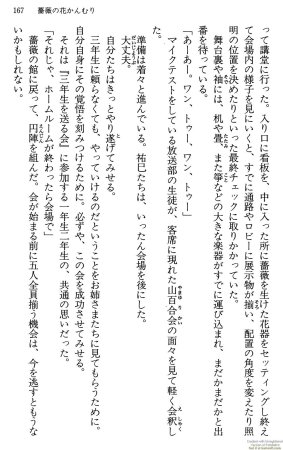 167　薔薇の花かんむり
って講堂に行った。入り口に看板を、中に入った所に薔薇を生けた花器をセッティングし終え
て会場内の様子を見にいくと、すでに通路やロビーに展示物が揃い、配置の角度を変えたり照
明の位置を決めたりといった最終チェックに取りかかっていた。
舞台裏や袖には、机や畳、また箏などの大きな楽器がすでに運び込まれ、まだかまだかと出
番を待っている。
「あーあー。ワン、トゥー、ワン、トゥー」
マイクテストをしている放送部の生徒が、客席に現れた山百合会の面々を見て軽く会釈し
た。
準備は着々と進んでいる。祐巳たちは、いったん会場を後にした。
大丈夫。
自分たちはきっとやり遂げてみせる。
三年生に頼らなくても、やっていけるのだということをお姉さまたちに見てもらうために。
自分自身にその覚悟を刻みつけるために。必ずや、この会を成功させてみせる。
それは『三年生を送る会』に参加する一年生二年生の、共通の思いだった。
「それじゃ、ホームルームが終わったら会場で」
薔薇の館に戻って、円陣を組んだ。会が始まる前に五人全員揃う機会は、今を逃すともうな
いかもしれない。